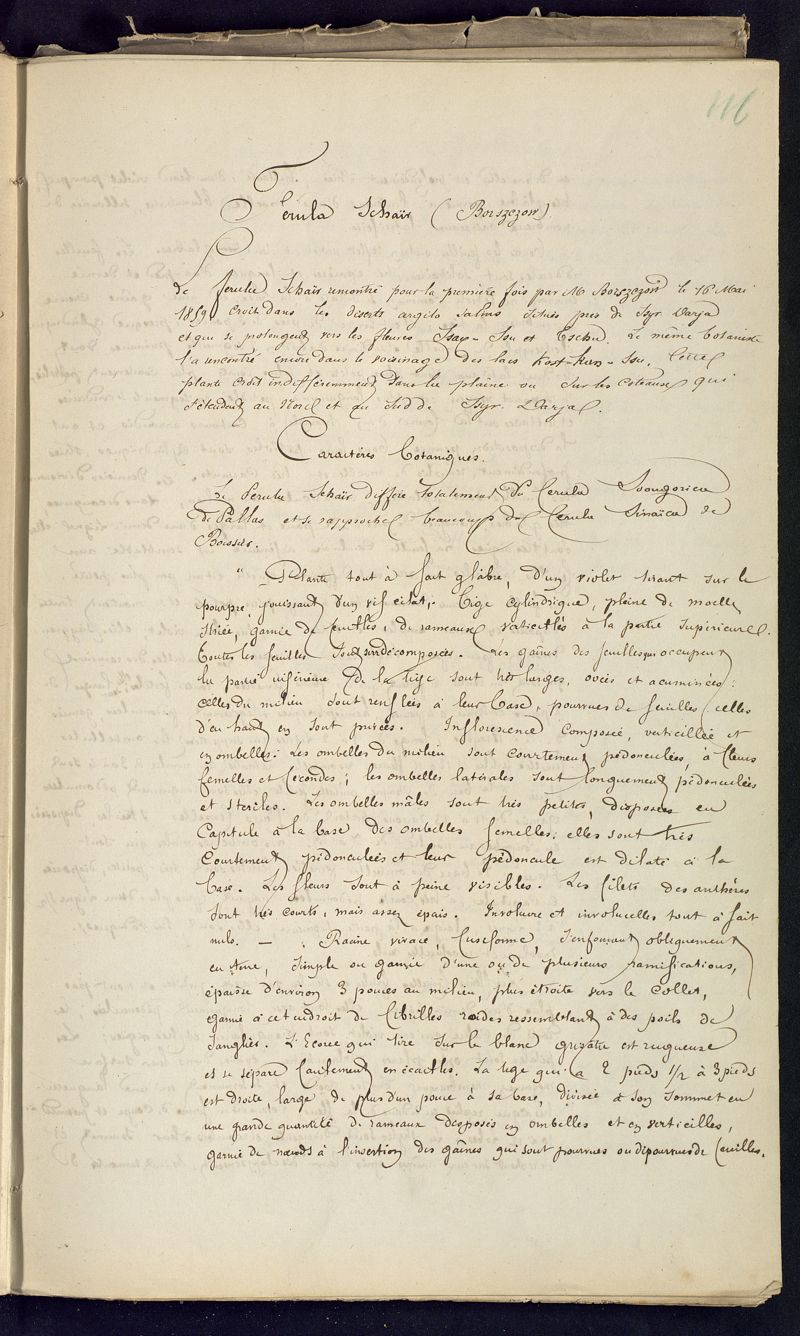 116
Ferula Schaïr (Borszczow)
Le ferula Schaïr rencontré pour la première fois par Mr Borszczow le 16 Mai
1859 croit dans les déserts argilo salins situés près de Syr Darja
et qui se prolongent vers les fleuves Ssary-Ssu et Tschu. Le même botaniste
l'a rencontré encore dans le voisinage des lacs Kart-kun-Ssu. Cette
plante croit indifféremment dans la plaine ou sur les coteaux qui
s'étendent au Nord et au Sud de Syr Darja.
Caractères botaniques.
Le Ferula Schaïr diffère totalement du Ferula Soongorica
de Pallas et se rapproche beaucoup du Ferula Sinaïca de
Boissier.
" Plante tout à fait glabre, d'un violet tirant sur le
pourpre, jouissant d'un vif éclat. Tige cylindrique, pleine de moelle
striée, garnie de feuilles, de rameaux verticillés à la partie supérieure.
Toutes les feuilles sont surdécomposées. Les gaines des feuilles qui occupent
la partie inférieure de la tige sont très larges, ovées et acuminées :
celles du milieu sont renflées à leur base, pourvues de feuilles ; celles
d'en haut en sont privées. Inflorescence composée, verticillée et
en ombelles. Les ombelles du milieu sont courtement pédonculées, à fleurs
femelles et fécondes ; les ombelles latérales sont longuement pédonculées
et stériles. Les ombelles mâles sont très petites, disposées en
Capitule à la base des ombelles femelles ; elles sont très
courtement pédonculées et leur pédoncule est dilaté à la
base. Les fleurs sont à peine visibles. Les filets des anthères
sont très courts, mais assez épais. Involucre et involucelles tout à fait
nuls. — Racine vivace, fusiforme, s'enfonçant obliquement
en terre, simple ou garnie d'une ou de plusieurs ramifications,
épaisse d'environ 3 pouces au milieu, plus étroite vers le collet,
garnie à cet endroit de fibrilles roides ressemblant à des poils de
Sanglier. L'Ecorce qui tire sur le blanc grisâtre est rugueuse
et se sépare facilement en écailles. La tige qui a 2 pieds 1/2 à 3 pieds
est droite, large de plus d'un pouce à sa base, divisée à son sommet en
une grande quantité de rameaux disposés en ombelles et en verticilles,
garnie de nœuds à l'insertion des gaînes qui sont pourvues ou dépourvues de feuilles.